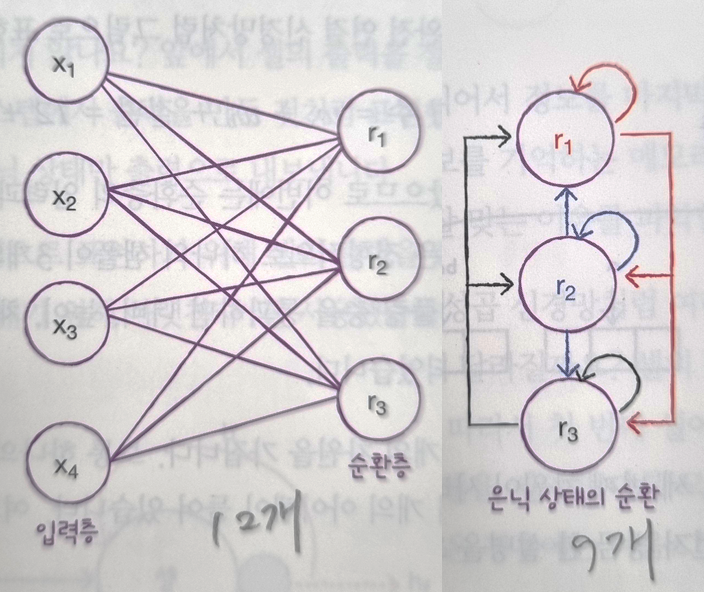 x1
x2
x3
x4
입력층
r1
r2
r3
순환층
12개
r1
r2
r3
은닉 상태의 순환
9개